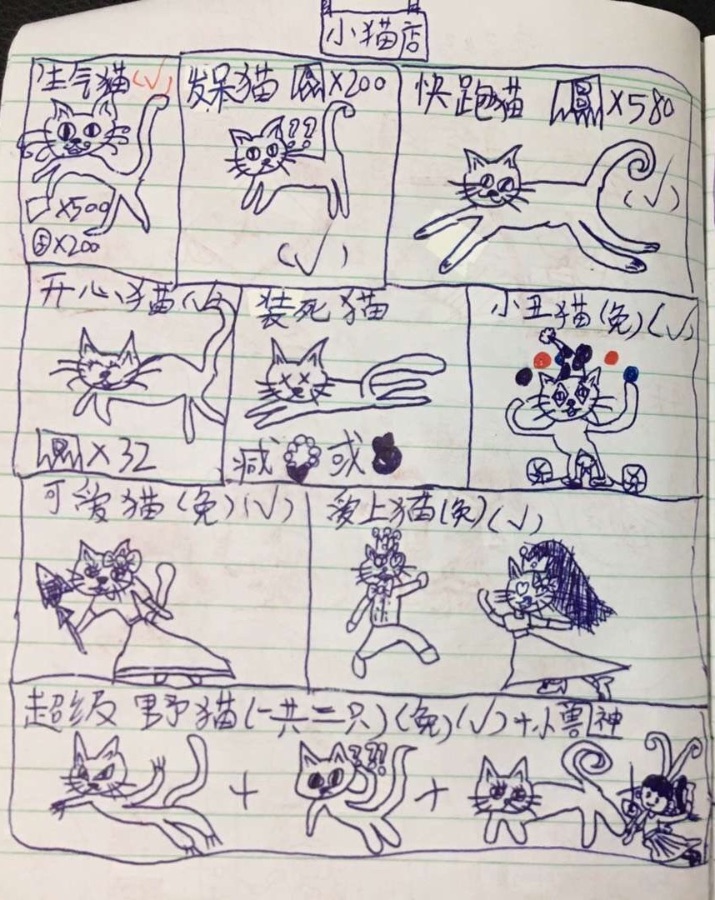 小猫店
生气猫(√)
×500
×200
发呆猫 ×200
??
(√)
快跑猫 ×580
(√)
开心猫(√)
×32
装死猫
减 或
小丑猫(免)(√)
可爱猫(免)(√)
爱上猫(免)(√)
超级野猫(一共三只)(免)(√)+小兽神
+ ??? +